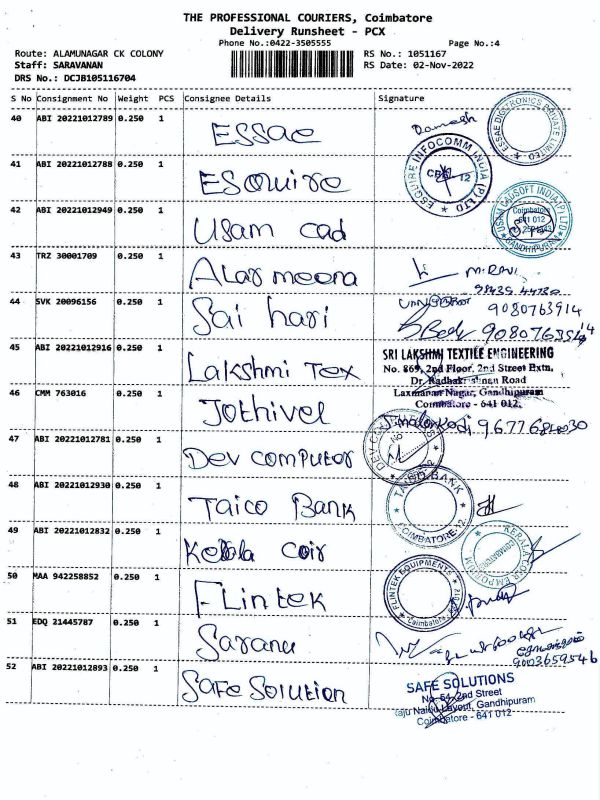 THE PROFESSIONAL COURIERS, Coimbatore
Delivery Runsheet - PCX
Phone No.:0422-3505555 Page No.:4
Route: ALAMUNAGAR CK COLONY RS No.: 1051167
Staff: SARAVANAN RS Date: 02-Nov-2022
DRS No.: DCJB105116704
S No Consignment No Weight PCS Consignee Details Signature
40 ABI 20221012789 0.250 1 ESSAE
ESSAE DIGITRONICS PRIVATE LIMITED
41 ABI 20221012788 0.250 1 ESQuire
ESQUIRE INFOCOMM INDIA (P) LTD
CBE - 12
42 ABI 20221012949 0.250 1 Usam cad
USAM CADSOFT INDIA (P) LTD
Coimbatore
641 012
GANDHIPURAM
43 TRZ 30001709 0.250 1 Alas meena M. RAVI
98435 44780
44 SVK 20096156 0.250 1 Sai hari 9080763914
45 ABI 20221012916 0.250 1 Lakshmi Tex
SRI LAKSHMI TEXTILE ENGINEERING
No. 869, 2nd Floor, 2nd Street Extn,
Dr. Radhakrishnan Road
Laxmanan Nagar, Gandhipuram
Coimbatore - 641 012.
46 CMM 763016 0.250 1 Jothivel
47 ABI 20221012781 0.250 1 Dev computer
48 ABI 20221012930 0.250 1 Taico Bank
TAICO BANK
COIMBATORE-12
49 ABI 20221012832 0.250 1 Kerala coir
KERALA COIR EMPORIUM
COIMBATORE
50 MAA 942258852 0.250 1 Flintek
FLINTEK EQUIPMENTS
Coimbatore
51 EDQ 21445787 0.250 1 Saranu
9003659546
52 ABI 20221012893 0.250 1 Safe Solution
SAFE SOLUTIONS
No. 64, 2nd Street
Raju Naidu Layout, Gandhipuram
Coimbatore - 641 012